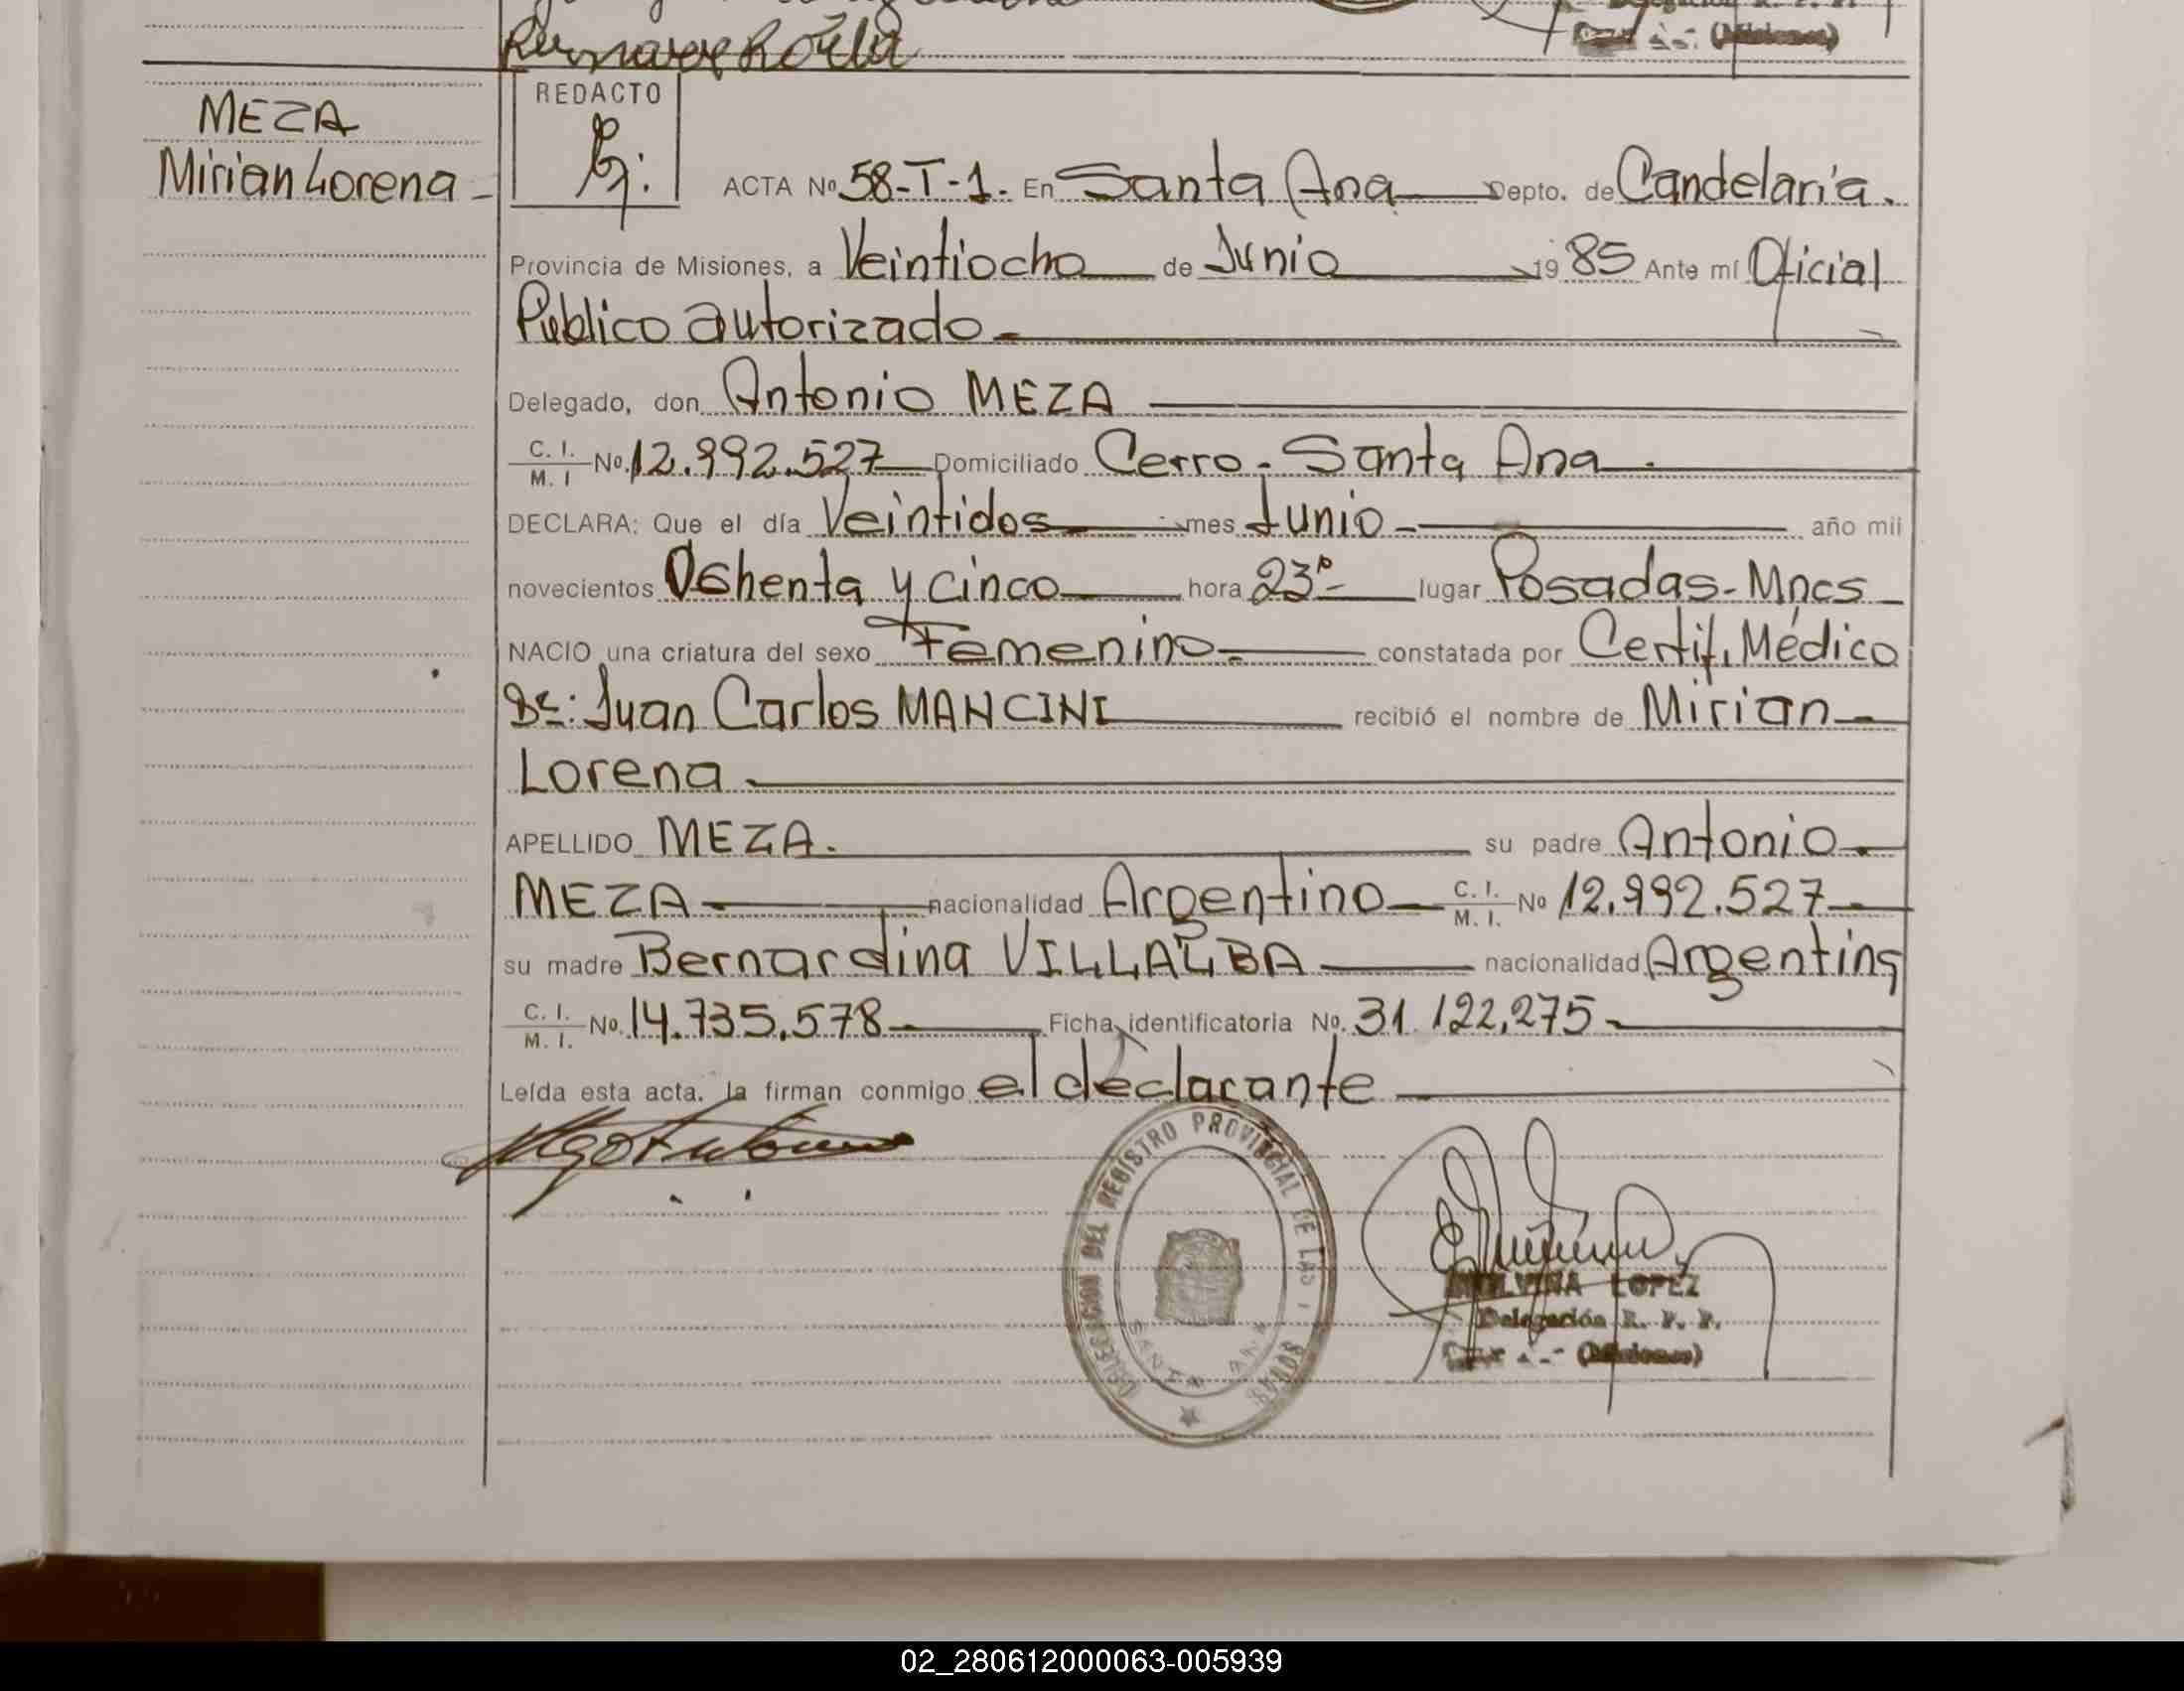 MEZA
Mirian Lorena -
REDACTO
ACTA Nº 58-T-1. En Santa Ana Depto. de Candelaria.
Provincia de Misiones, a Veintiocho de Junio 19 85 Ante mí Oficial
Público autorizado.
Delegado, don Antonio MEZA
C. I. / M. I Nº. 12.992.527 Domiciliado Cerro - Santa Ana.
DECLARA: Que el día Veintidos mes Junio año mil
novecientos Oshenta y cinco hora 23º lugar Posadas - Mnes
NACIO una criatura del sexo Femenino. constatada por Certif. Médico
Dr: Juan Carlos MANCINI recibió el nombre de Mirian
Lorena.
APELLIDO MEZA. su padre Antonio
MEZA nacionalidad Argentino C. I. / M. I. Nº 12.992.527
su madre Bernardina VILLALBA nacionalidad Argentina
C. I. / M. I. Nº. 14.735.578 Ficha identificatoria Nº. 31.122,275
Leída esta acta, la firman conmigo el declarante
DELEGACION DEL REGISTRO PROVINCIAL DE LAS PERSONAS
SANTA ANA
LOPEZ
Delegación R. P. P.
(Misiones)
02_280612000063-005939